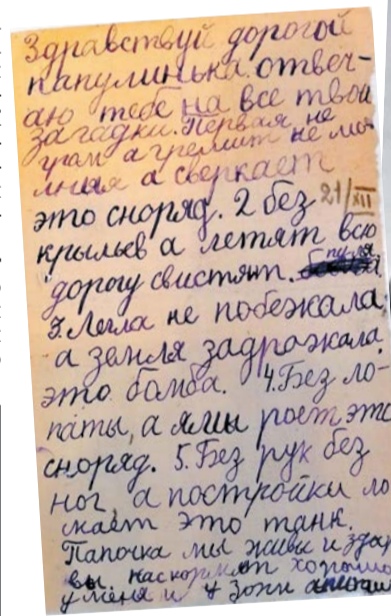 Здравствуй дорогой
папулинька. отвеч-
аю тебе на все твои
загадки. Первая не
гром а гремит не мо
лния а сверкает
это сноряд. 2 без 21/XII
крыльев а летят всю
дорогу свистят. пуля
3. Легла не побежала,
а земля задрожала
это бомба. 4. Без ло-
паты, а ямы роет, это
сноряд. 5. Без рук без
ног, а постройки ло
мает это танк.
Папочка мы живы и здор
вы. нас кормят хорошо
у меня и у Зони